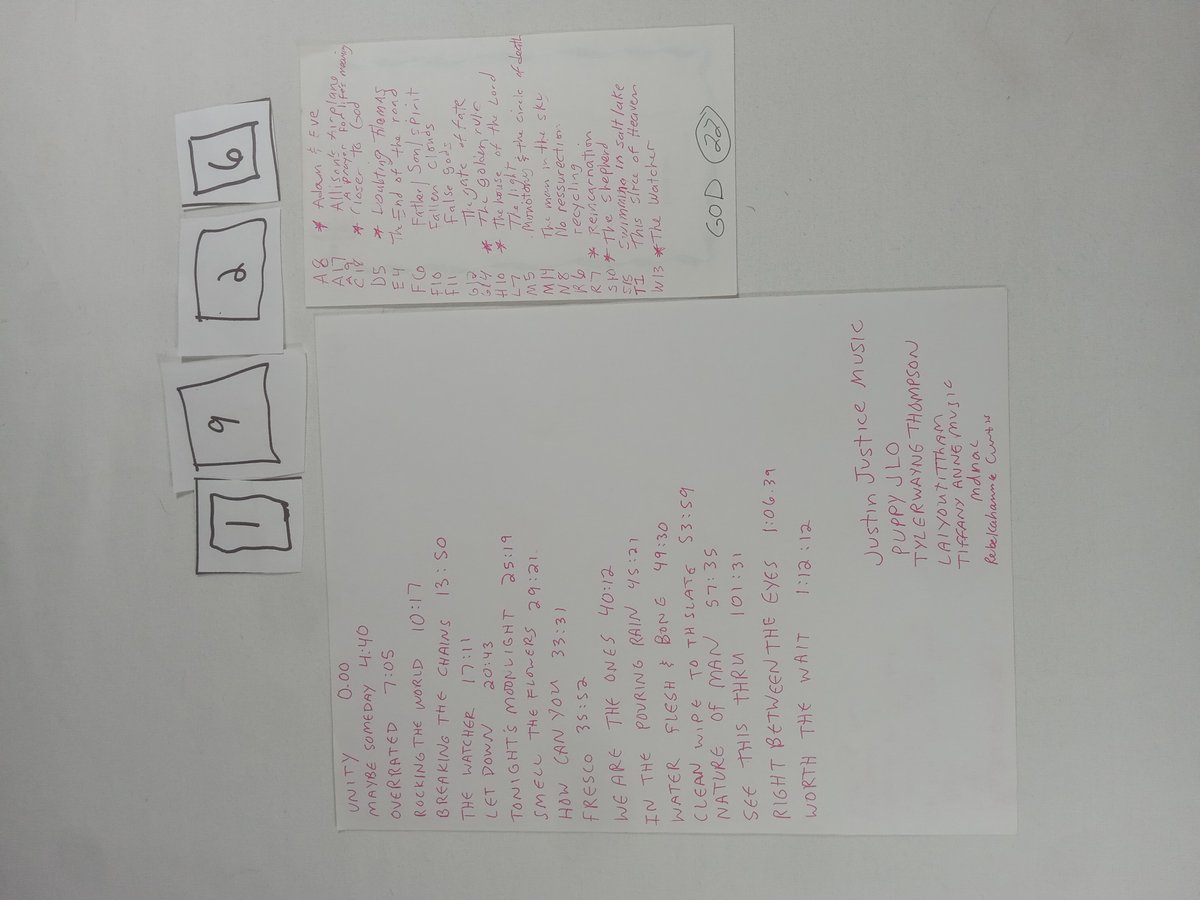 1
9
2
6
UNITY 0.00
MAYBE SOMEDAY 4:40
OVERRATED 7:05
ROCKING THE WORLD 10:17
BREAKING THE CHAINS 13:50
THE WATCHER 17:11
LET DOWN 20:43
TONIGHT'S MOONLIGHT 25:19
SMELL THE FLOWERS 29:21
HOW CAN YOU 33:31
FRESCO 35:52
WE ARE THE ONES 40:12
IN THE POURING RAIN 45:21
WATER FLESH & BONE 49:30
CLEAN WIPE TO TH SLATE 53:59
NATURE OF MAN 57:35
SEE THIS THRU 101:31
RIGHT BETWEEN THE EYES 1:06.39
WORTH THE WAIT 1:12:12
Justin Justice MUSIC
PUPPY JLO
TYLERWAYNE THOMPSON
LAIYOUTITTHAM
TIFFANY ANNE MUSIC
mdnac
A8 * Adam & Eve
A17 Allison's Airplane
A9 A prayer for life's meaning
C18 * Closer to God
D5 * Doubting Thomas
E4 The End of the road
F6 Father/Son/Spirit
F10 Fallen Clouds
F11 False gods
G13 The gate of Fate
G14 * The golden rule
H10 * The house of the Lord
L7 The light
M5 Monotony & the circle of death
M14 The man in the sky
N8 No ressurection
R6 recycling
R7 * Reincarnation
S10 * The sheperd
S15 Swimming in salt lake
T1 This slice of Heaven
W13 * The Watcher
GOD 22